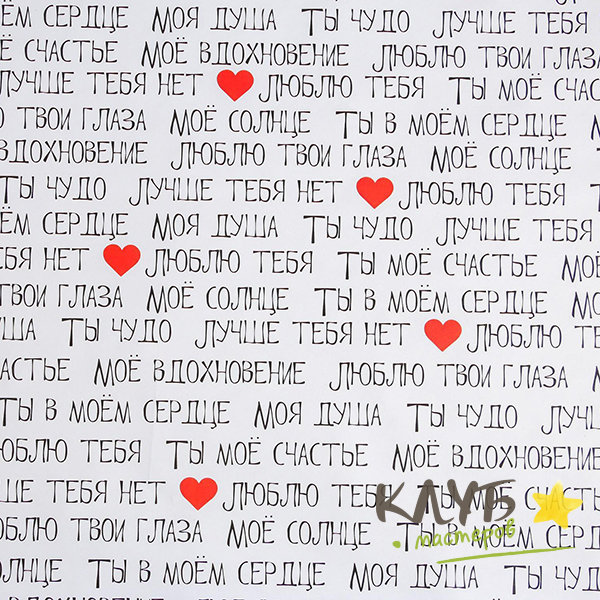 МОЁМ СЕРДЦЕ МОЯ ДУША ТЫ ЧУДО ЛУЧШЕ ТЕБЯ
СЧАСТЬЕ МОЁ ВДОХНОВЕНИЕ ЛЮБЛЮ ТВОИ ГЛАЗА
ЛУЧШЕ ТЕБЯ НЕТ ЛЮБЛЮ ТЕБЯ ТЫ МОЁ СЧАС
Ю ТВОИ ГЛАЗА МОЁ СОЛНЦЕ ТЫ В МОЁМ СЕРДЦЕ М
ВДОХНОВЕНИЕ ЛЮБЛЮ ТВОИ ГЛАЗА МОЁ СОЛНЦЕ
ТЫ ЧУДО ЛУЧШЕ ТЕБЯ НЕТ ЛЮБЛЮ ТЕБЯ Т
ОЁМ СЕРДЦЕ МОЯ ДУША ТЫ ЧУДО ЛУЧШЕ ТЕБЯ
ЕБЯ НЕТ ЛЮБЛЮ ТЕБЯ ТЫ МОЁ СЧАСТЬЕ МОЁ
ТВОИ ГЛАЗА МОЁ СОЛНЦЕ ТЫ В МОЁМ СЕРДЦЕ МО
УША ТЫ ЧУДО ЛУЧШЕ ТЕБЯ НЕТ ЛЮБЛЮ ТЕ
АСТЬЕ МОЁ ВДОХНОВЕНИЕ ЛЮБЛЮ ТВОИ ГЛАЗА
ТЫ В МОЁМ СЕРДЦЕ МОЯ ДУША ТЫ ЧУДО ЛУЧШ
ЮБЛЮ ТЕБЯ ТЫ МОЁ СЧАСТЬЕ МОЁ ВДОХНОВЕНИЕ
ШЕ ТЕБЯ НЕТ ЛЮБЛЮ ТЕБЯ ТЫ МОЁ СЧАСТЬ
КЛУБ
мастеров
ЮБЛЮ ТВОИ ГЛАЗА МОЁ СОЛНЦЕ ТЫ В МОЁМ СЕРД
ОЛНЦЕ ТЫ В МОЁМ СЕРДЦЕ МОЯ ДУША ТЫ ЧУД